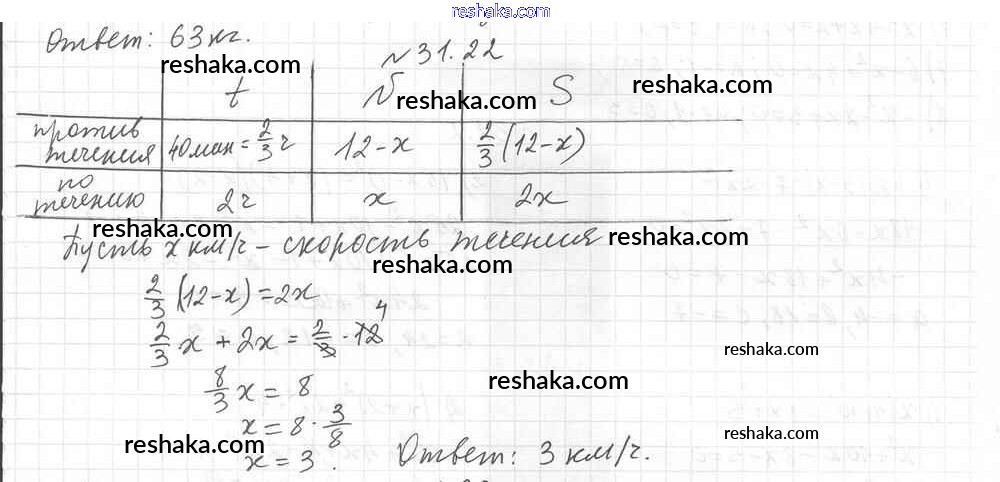 reshaka.com
Ответ: 63 кг.
№ 31.22
reshaka.com
t v S
reshaka.com reshaka.com
против течения 40 мин = 2/3 ч 12-x 2/3 (12-x)
по течению 2ч x 2x
reshaka.com
Пусть x км/ч - скорость течения
reshaka.com
reshaka.com
2/3 (12-x) = 2x
2/3 x + 2x = 2/3 · 12 4
reshaka.com
8/3 x = 8
reshaka.com
x = 8 · 3/8
reshaka.com
reshaka.com
x = 3. Ответ: 3 км/ч.
reshaka.com